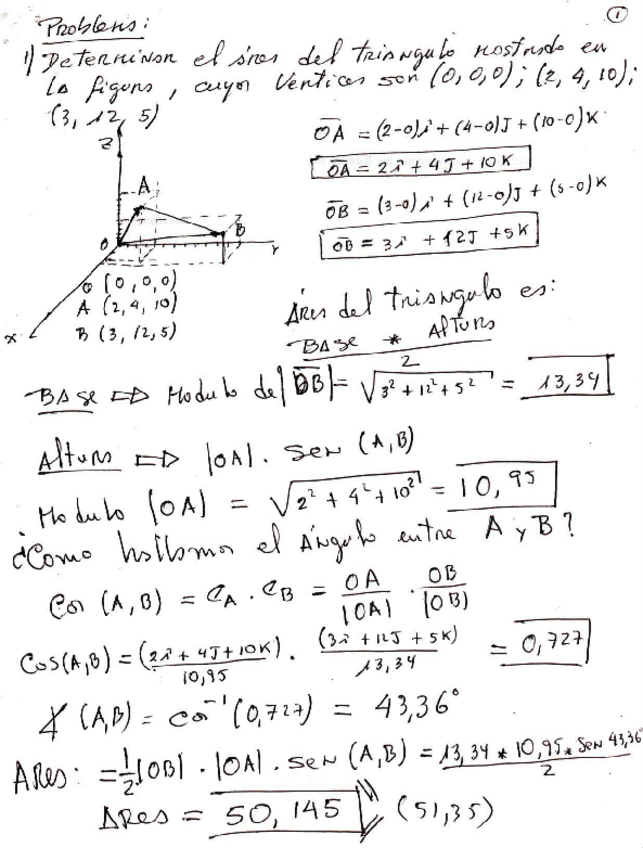 ①
Problems:
1) Determinar el área del triangulo mostrado en
la figura, cuyos vertices son (0,0,0); (2, 4, 10);
(3, 12, 5)
OA = (2-0)i + (4-0)J + (10-0)K
OA = 2i + 4J + 10K
OB = (3-0)i + (12-0)J + (5-0)K
OB = 3i + 12J + 5K
Z
A
O
B
Y
X
O (0,0,0)
A (2,4,10)
B (3,12,5)
Area del triangulo es:
BASE * Altura
2
BASE ⇒ Modulo de |OB| = √3² + 12² + 5² = 13,34
Altura ⇒ |OA|. Sen (A,B)
Modulo |OA| = √2² + 4² + 10² = 10,95
¿Como hallamos el Ángulo entre A y B?
Cos (A,B) = eA . eB = OA/|OA| . OB/|OB|
Cos(A,B) = (2i + 4J + 10K)/10,95 . (3i + 12J + 5K)/13,34 = 0,727
∡ (A,B) = cos⁻¹ (0,727) = 43,36°
Area: = 1/2 |OB| . |OA| . sen (A,B) = 13,34 * 10,95 * Sen 43,36°/2
Area = 50,145 (51,35)